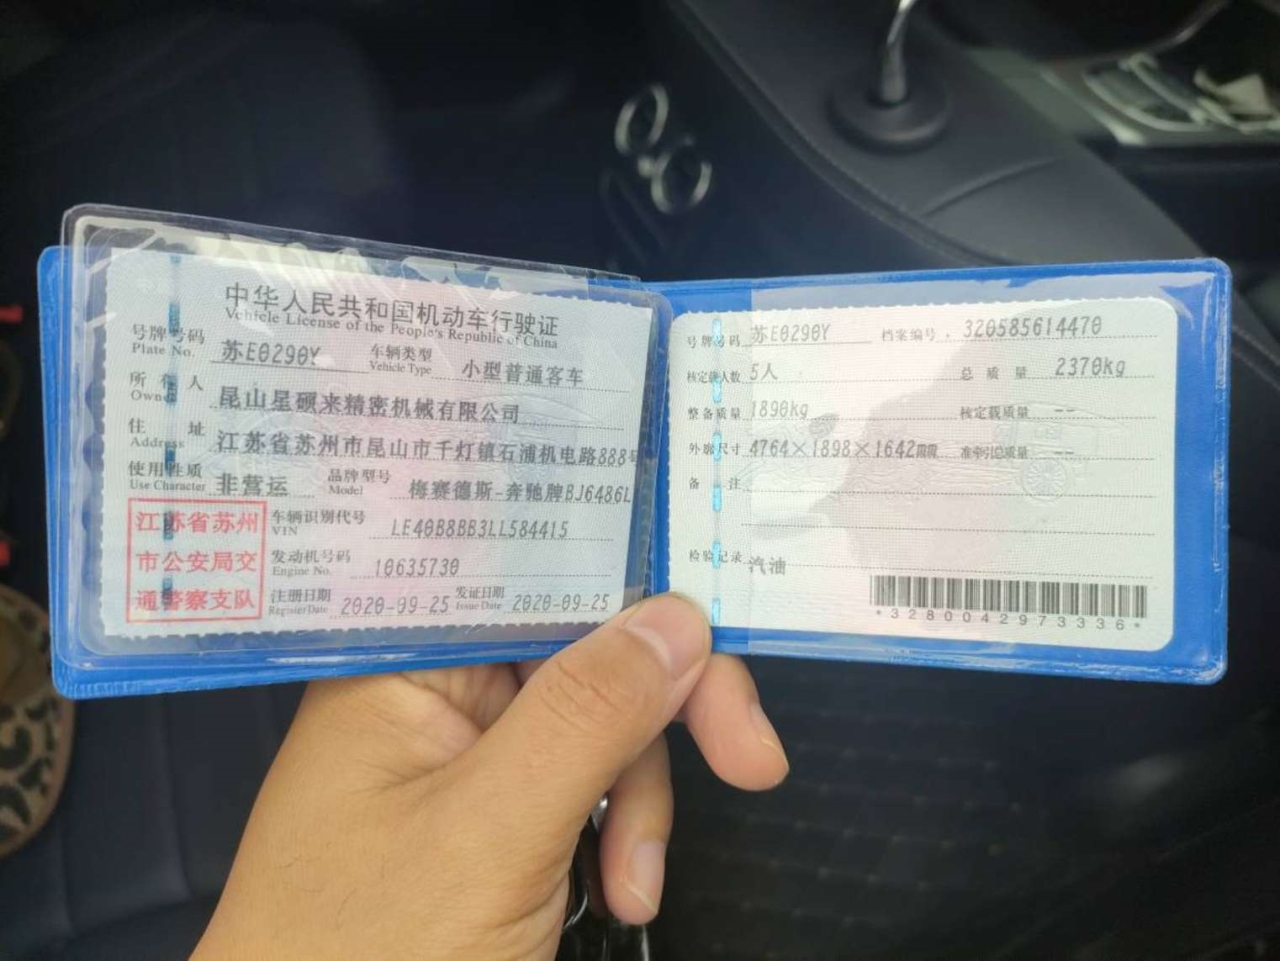 中华人民共和国机动车行驶证
Vehicle License of the People's Republic of China
号牌号码 苏E0290Y 车辆类型 小型普通客车
Plate No. Vehicle Type
所有人 昆山星硕来精密机械有限公司
Owner
住址 江苏省苏州市昆山市千灯镇石浦机电路888号
Address
使用性质 非营运 品牌型号 梅赛德斯-奔驰牌BJ6486L
Use Character Model
江苏省苏州
市公安局交
通警察支队
车辆识别代号 LE40B8BB3LL584415
VIN
发动机号码 10635730
Engine No.
注册日期 2020-09-25 发证日期 2020-09-25
Register Date Issue Date
号牌号码 苏E0290Y 档案编号 320585614470
核定载人数 5人 总质量 2370kg
整备质量 1890kg 核定载质量 --
外廓尺寸 4764×1898×1642mm 准牵引总质量 --
备注
检验记录 汽油
*3280042973336*